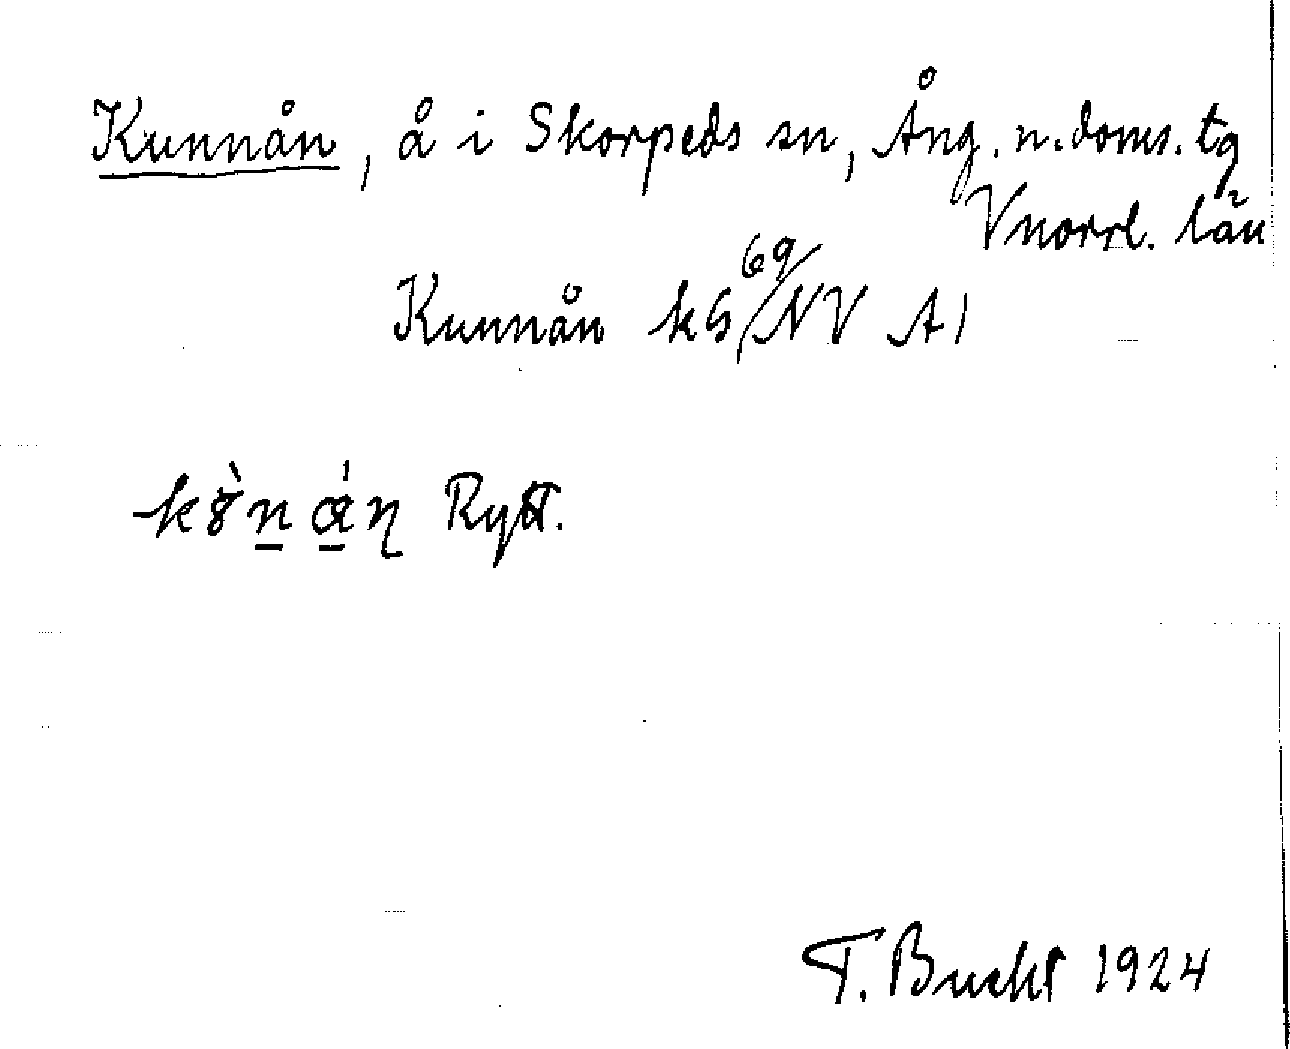 Kunnån, å i Skorpeds sn, Ång. n. doms. tg
Vnorrl. län
Kunnån kS 69/NV A1
Rytt.
T. Bucht 1924